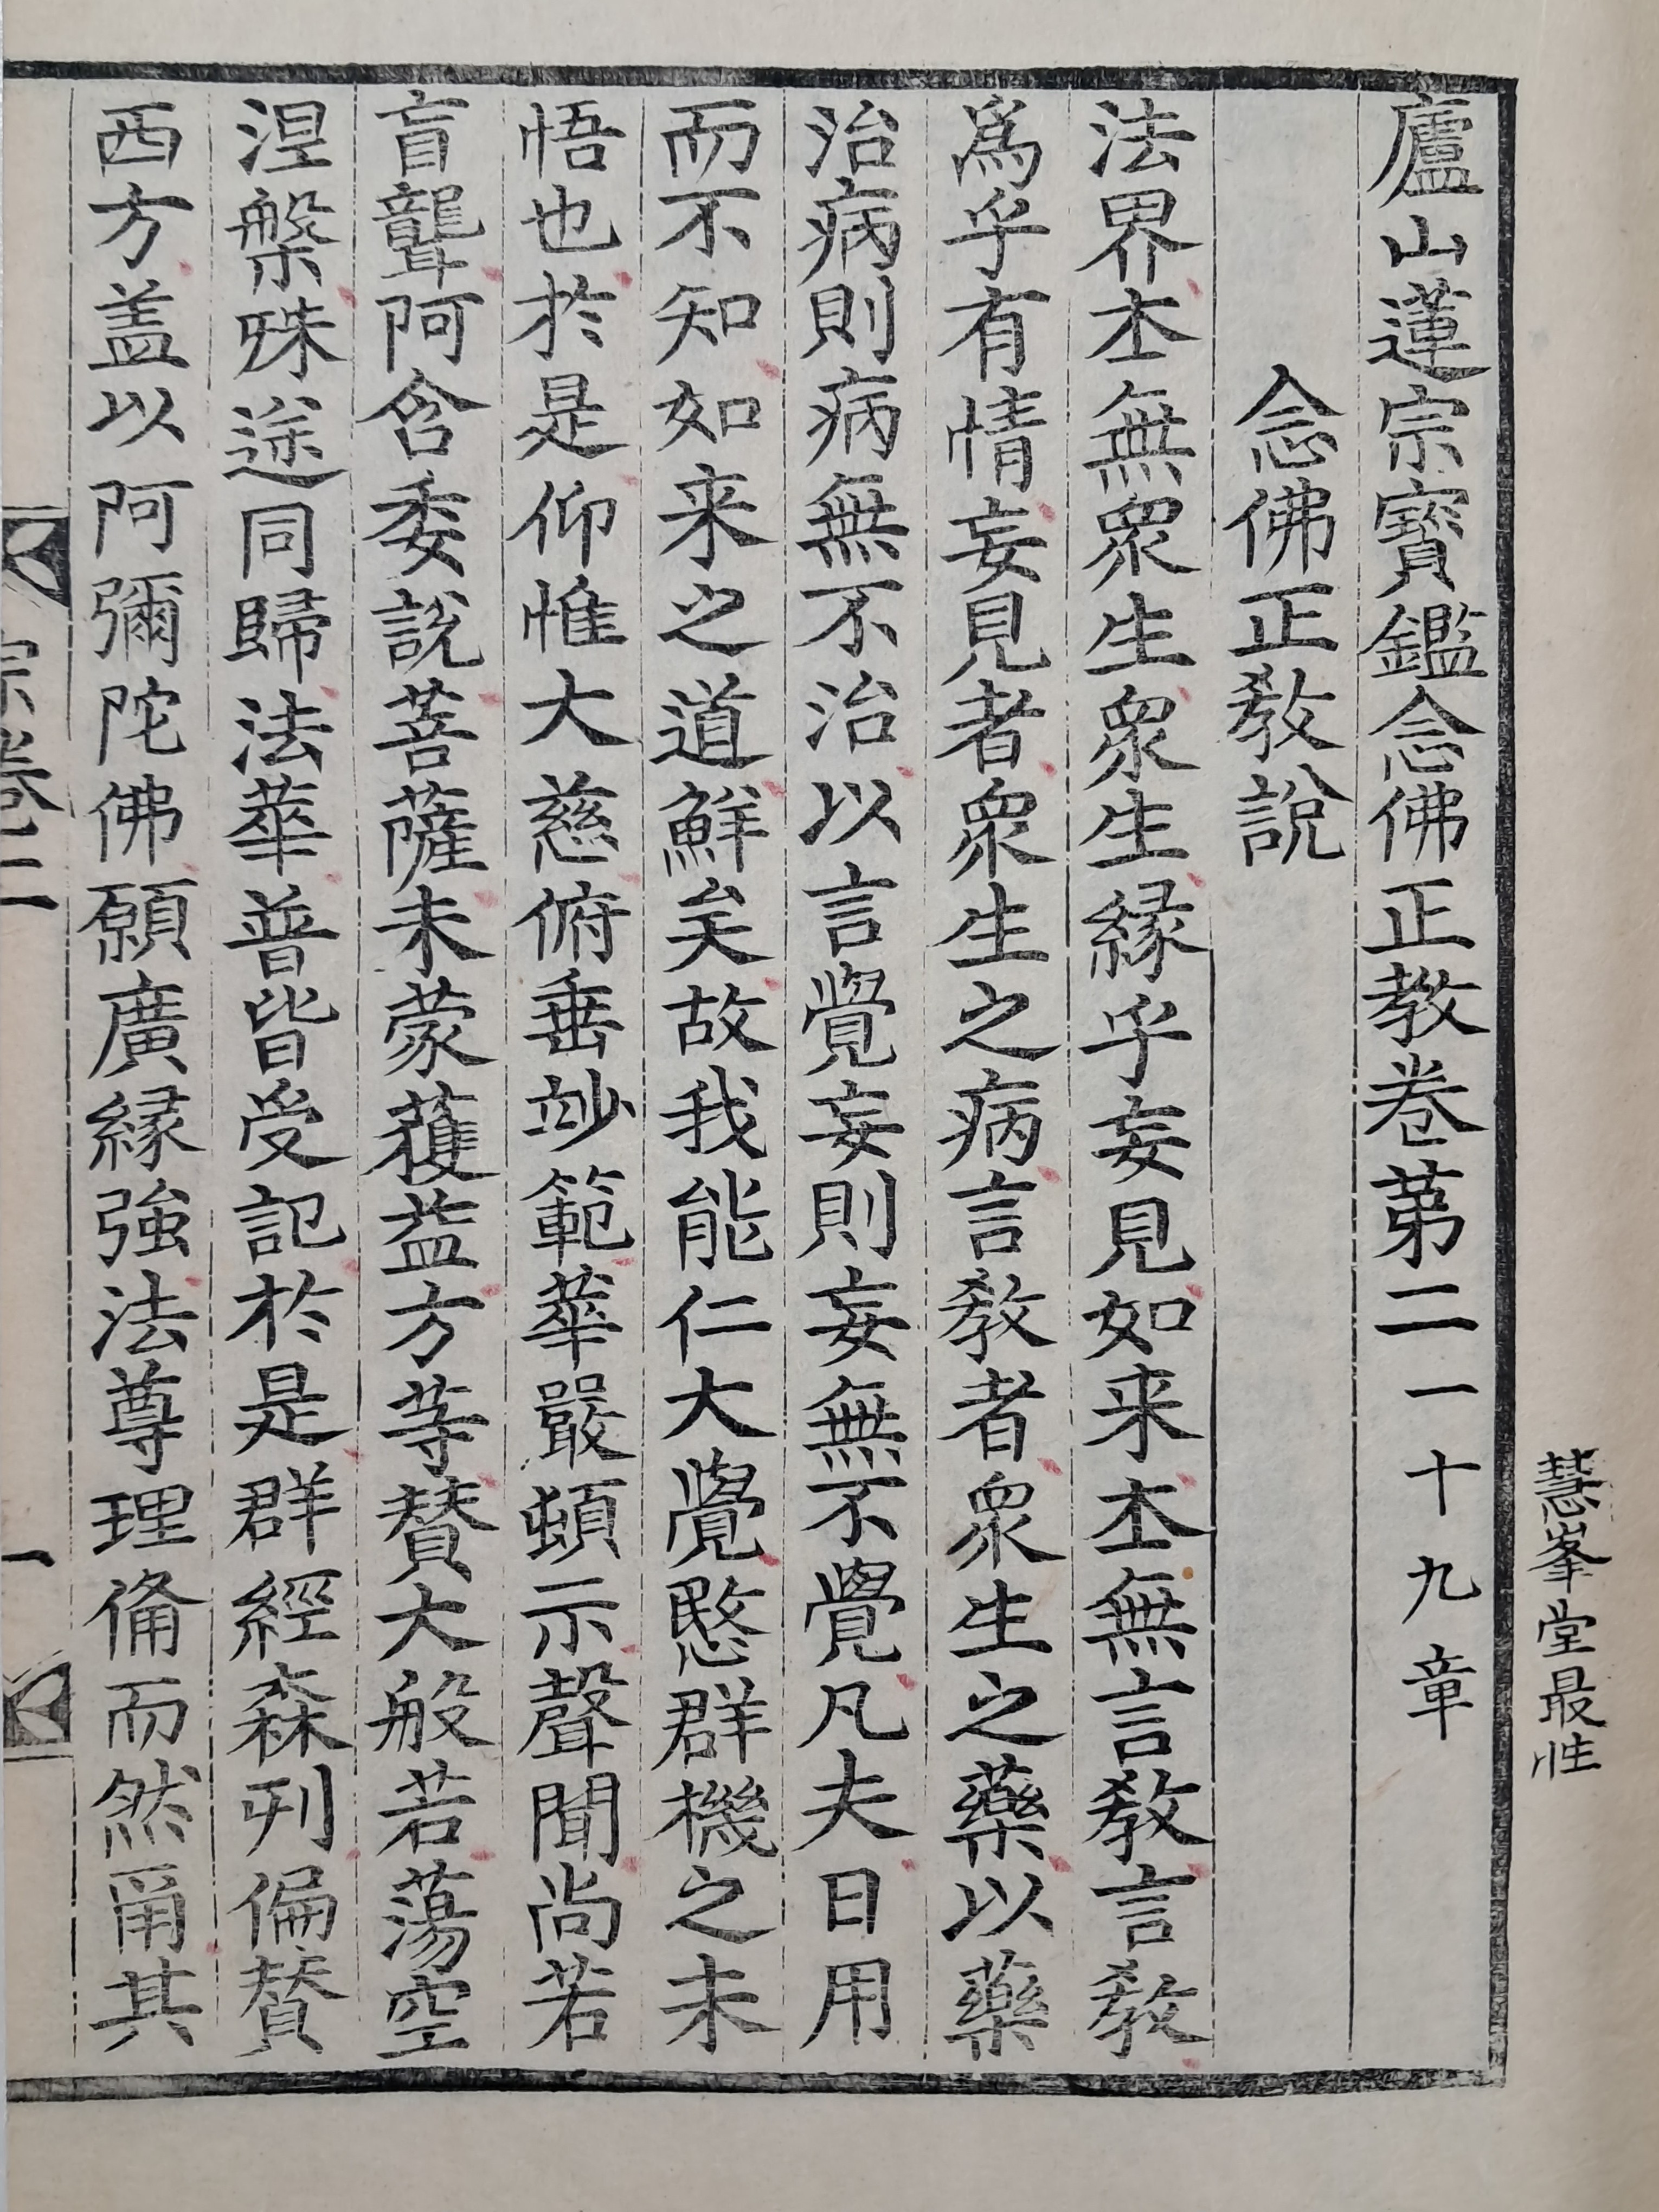 廬山蓮宗寶鑑念佛正教卷第二一十九章
念佛正教說
法界本無眾生眾生緣乎妄見如来本無言教言教
為乎有情妄見者眾生之病言教者眾生之藥以藥
治病則病無不治以言覺妄則妄無不覺凡夫日用
而不知如来之道鮮矣故我能仁大覺愍群機之未
悟也於是仰惟大慈俯垂玅範華嚴頓示聲聞尚若
盲聾阿含委說菩薩未蒙獲益方等賛大般若蕩空
涅槃殊途同歸法華普皆受記於是群經森列偏賛
西方盖以阿彌陀佛願廣緣強法尊理俻而然甭其
宗卷二
一
慧峯堂最性